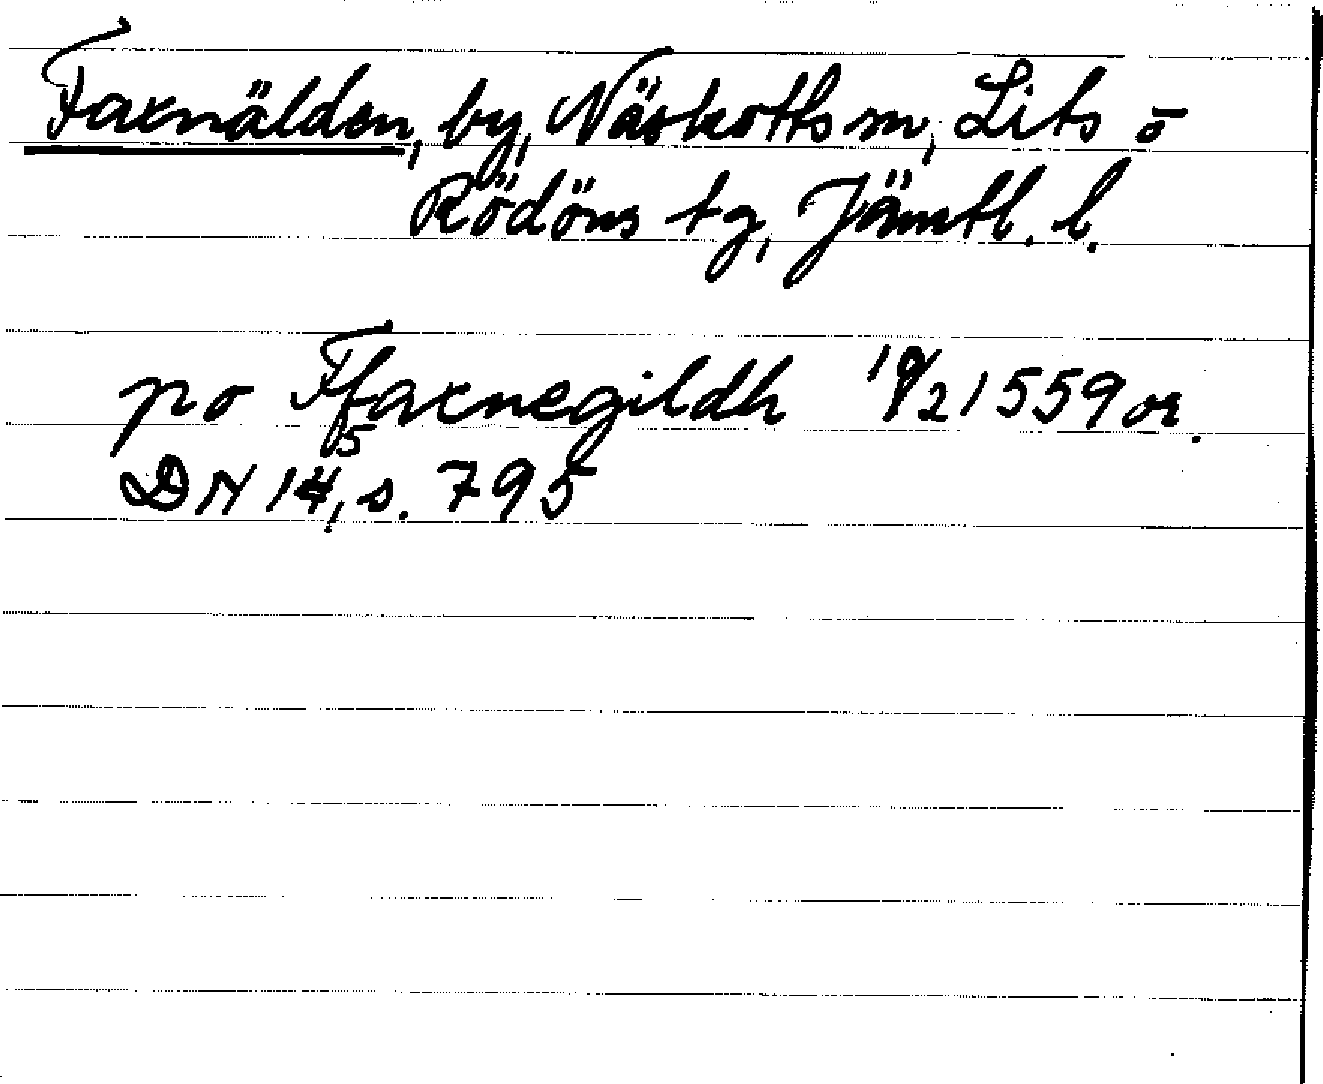 Faxnälden, by, Näskotts sn, Lits o
Rödöns tg, Jämtl. l.
po Ffaxnegildh 19/2 1559 or.
DN 15, s. 795